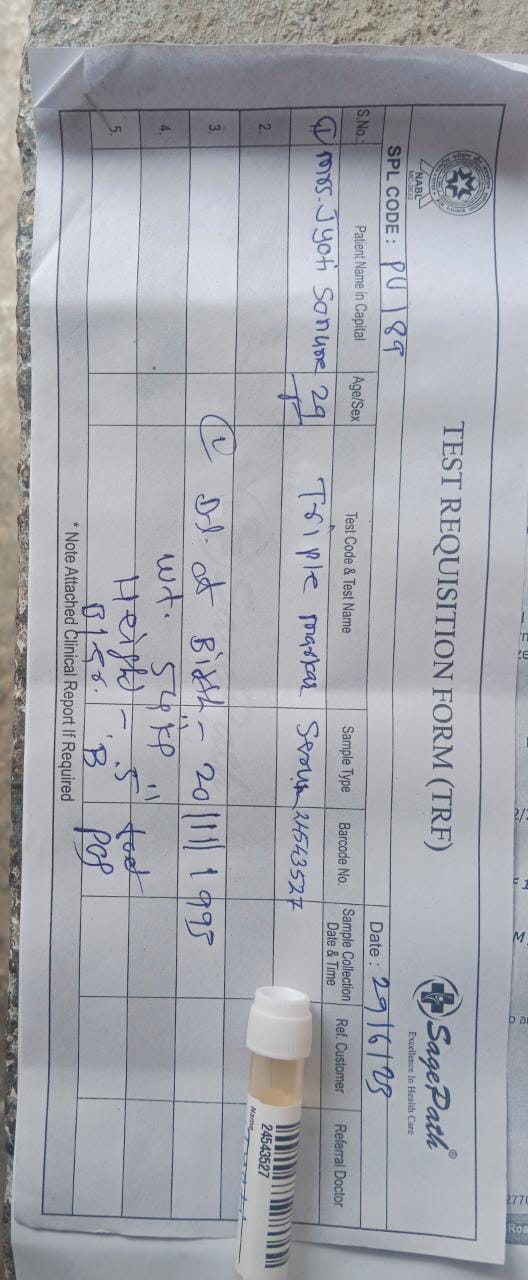 NABL
MC-2633
TEST REQUISITION FORM (TRF)
SagePath®
Excellence In Health Care
SPL CODE : PU189
Date : 29/6/23
S.No.: Patient Name in Capital Age/Sex Test Code & Test Name Sample Type Barcode No. Sample Collection Date & Time Ref. Customer Referral Doctor
① Mrs. Jyoti Sonune 29 F Triple marker Serum 24543527
2.
3. ① Dt. of Birth - 20/11/1995
4. wt. 54 kg
5. Height - 5" foot
B/Gr. "B" pos
* Note Attached Clinical Report If Required
24543527
Name